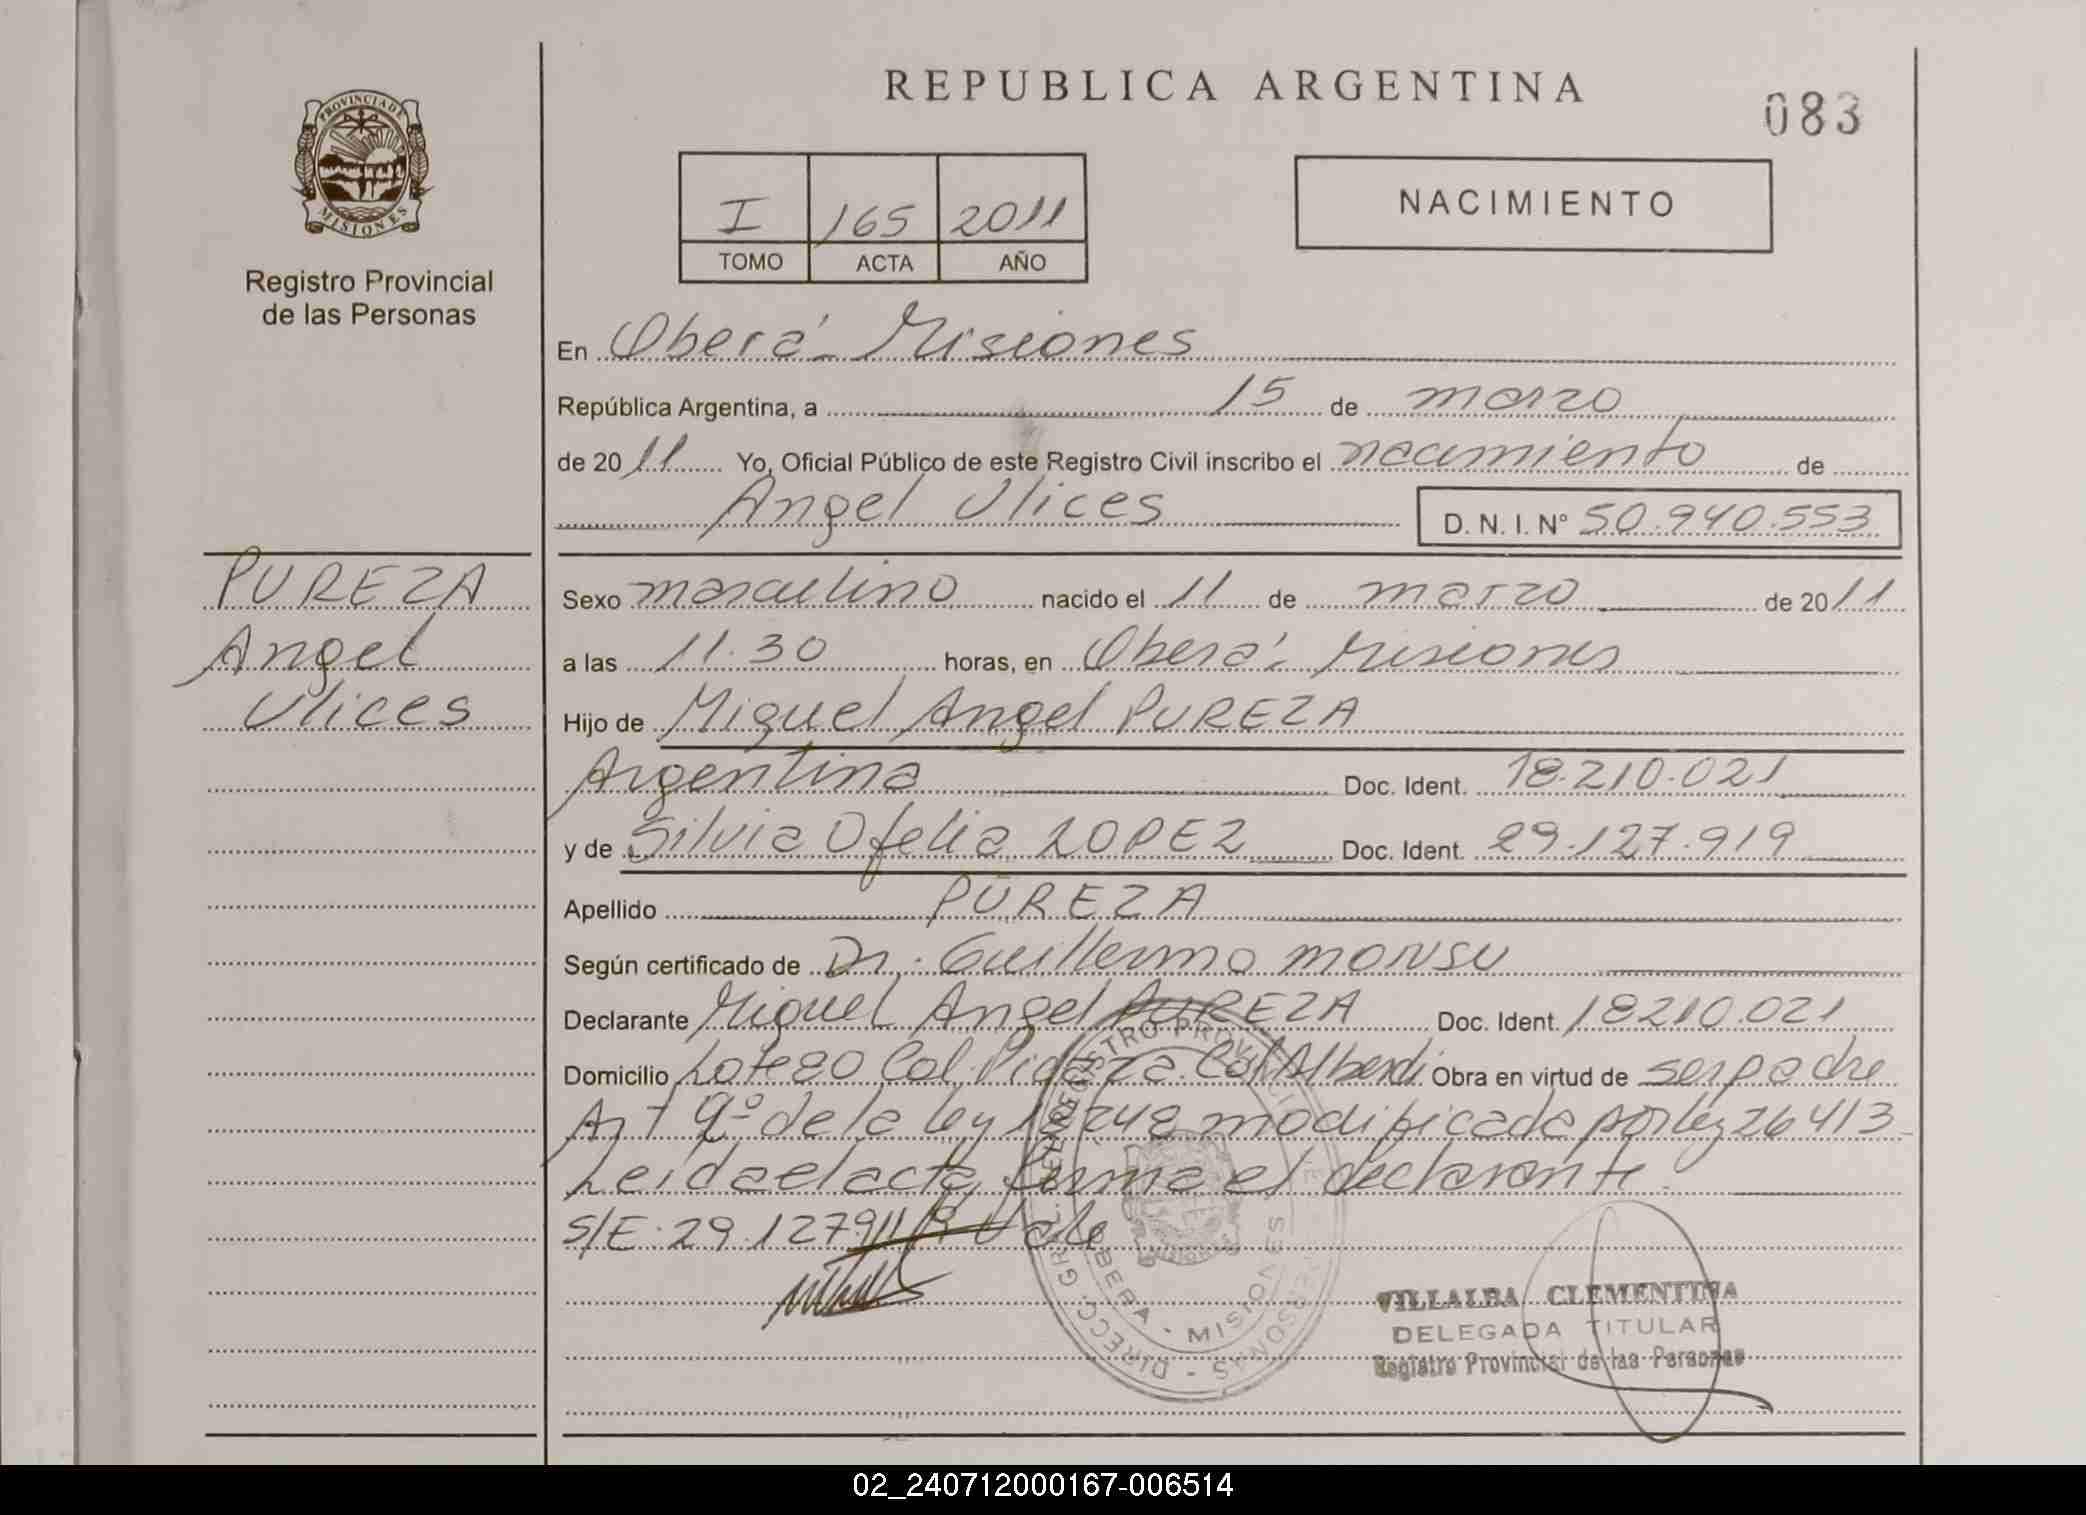 REPUBLICA ARGENTINA
083
PROVINCIA DE
MISIONES
Registro Provincial
de las Personas
I 165 2011
TOMO ACTA AÑO
NACIMIENTO
En Oberá - Misiones
República Argentina, a 15 de marzo
de 2011 Yo, Oficial Público de este Registro Civil inscribo el nacimiento de
Angel Ulices D. N. I. N° 50.940.553
PUREZA
Angel
Ulices
Sexo masculino nacido el 11 de marzo de 2011
a las 11.30 horas, en Oberá - Misiones
Hijo de Miguel Angel PUREZA
Argentina Doc. Ident. 18.210.021
y de Silvia Ofelia LOPEZ Doc. Ident. 29.127.919
Apellido PUREZA
Según certificado de Dr. Guillermo MONSU
Declarante Miguel Angel PUREZA Doc. Ident. 18210.021
Domicilio Lote 80 Col. Alberdi Obra en virtud de ser padre
Art 9º de la ley modificada por ley 26413
Leida el acta firma el declarante
S/E. 29.127919 Vale
OBERA - MISIONES
VILLALBA CLEMENTINA
DELEGADA TITULAR
Registro Provincial de las Personas
02_240712000167-006514